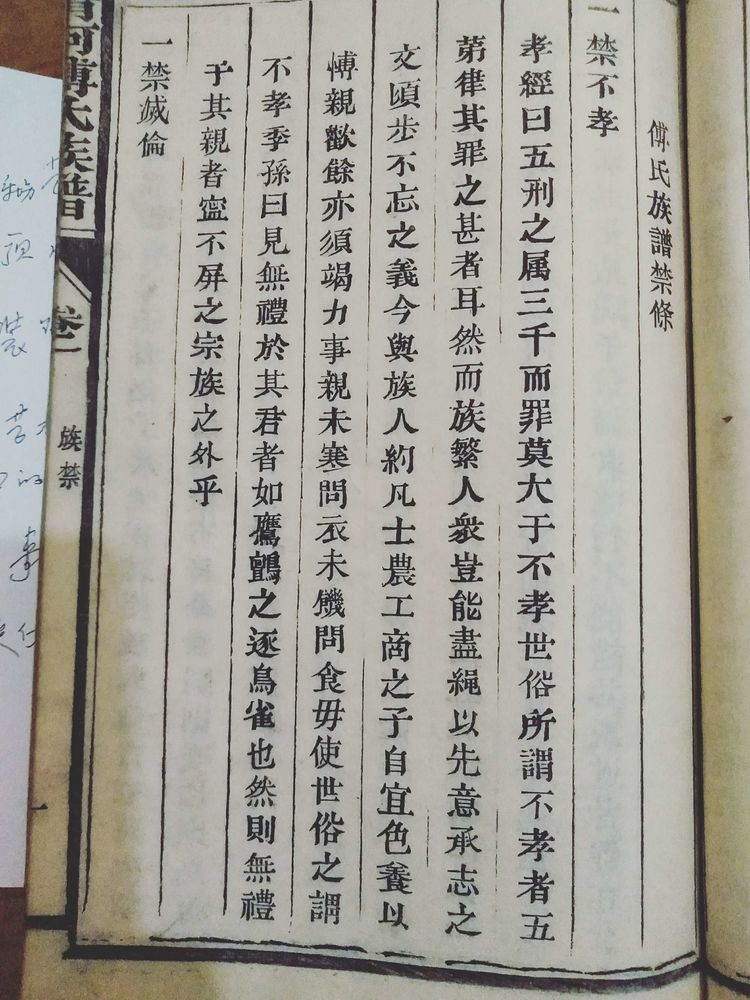 傅氏族譜禁條
一禁不孝
孝經曰五刑之属三千而罪莫大于不孝世俗所謂不孝者五
苐律其罪之甚者耳然而族繁人衆豈能盡繩以先意承志之
文頃步不忘之義今與族人約凡士農工商之子自宜色養以
愽親歡餘亦須竭力事親未寒問衣未饑問食毋使世俗之謂
不孝季孫曰見無禮於其君者如鷹鸇之逐鳥雀也然則無禮
于其親者寍不屏之宗族之外乎
一禁滅倫
河傅氏族譜 卷一 族禁 一